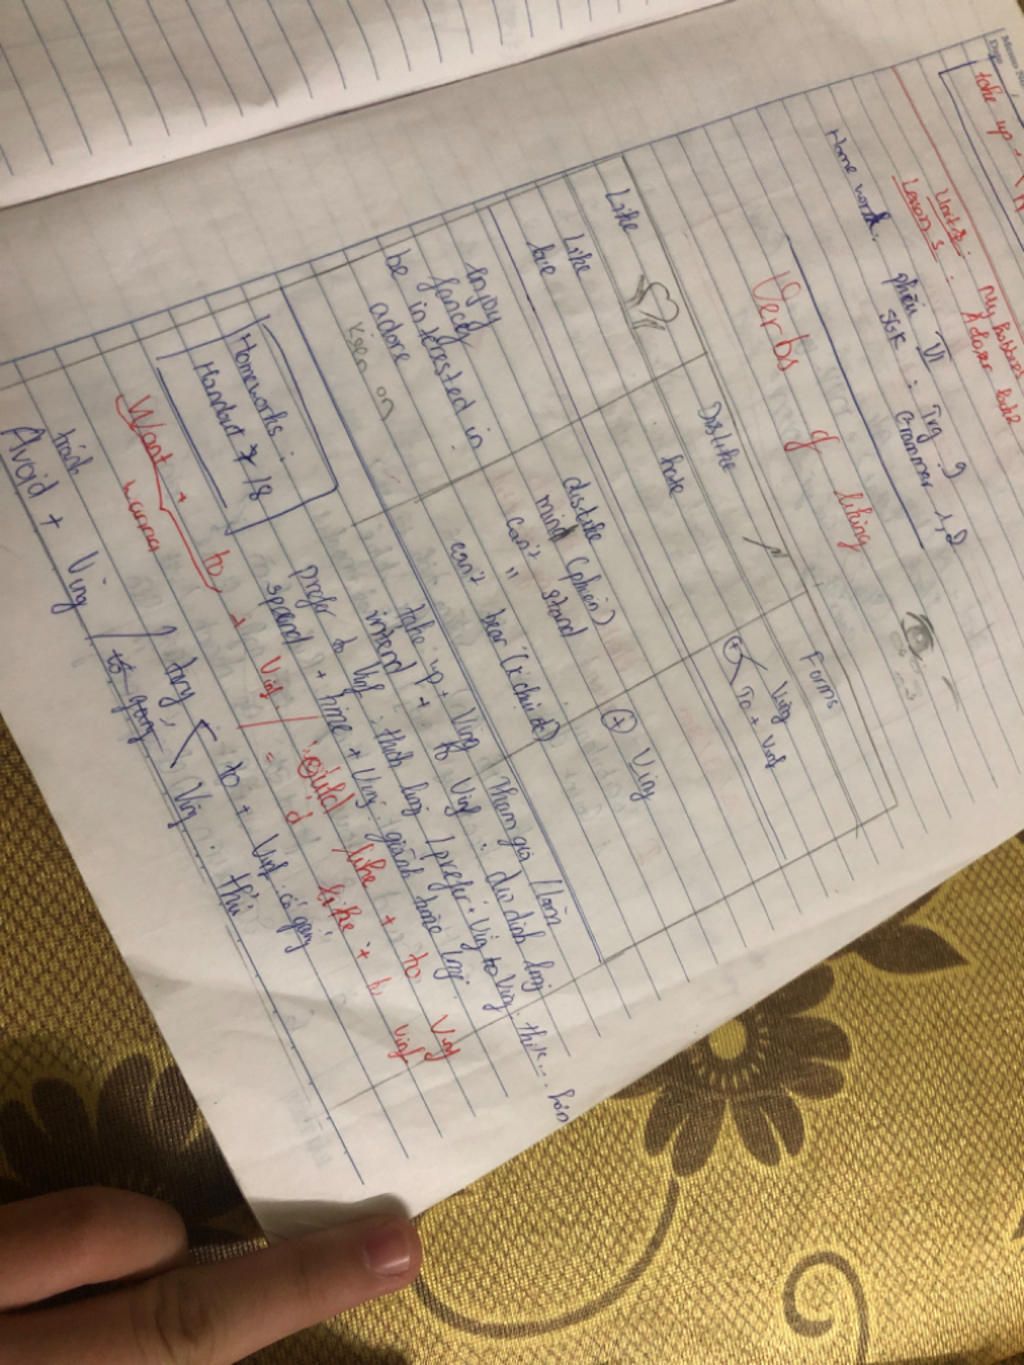 take up
Unit 3: My hobbies
Lesson 3: A closer look 2
Home work: phiếu VI
SGK: Trg 9
Grammar 1, 2
Verbs of liking
Like Dislike Forms
Like hate + Ving
love To + Vinf
enjoy dislike + Ving
fancy mind (phiền)
be interested in can't stand
adore can't bear (k chịu đc)
Keen on
take up + Ving tham gia / làm
intend + to Vinf: dự định làm
prefer to Vinf thích làm / prefer + Ving to Ving: thik... hơn
spend + time + Ving giành
Homeworks:
Handout 7 / 8
Want + to + Vinf / = would like + to Vinf
wanna = 'd like + to Vinf
try to + Vinf cố gắng
Ving thử
tránh
Avoid + Ving